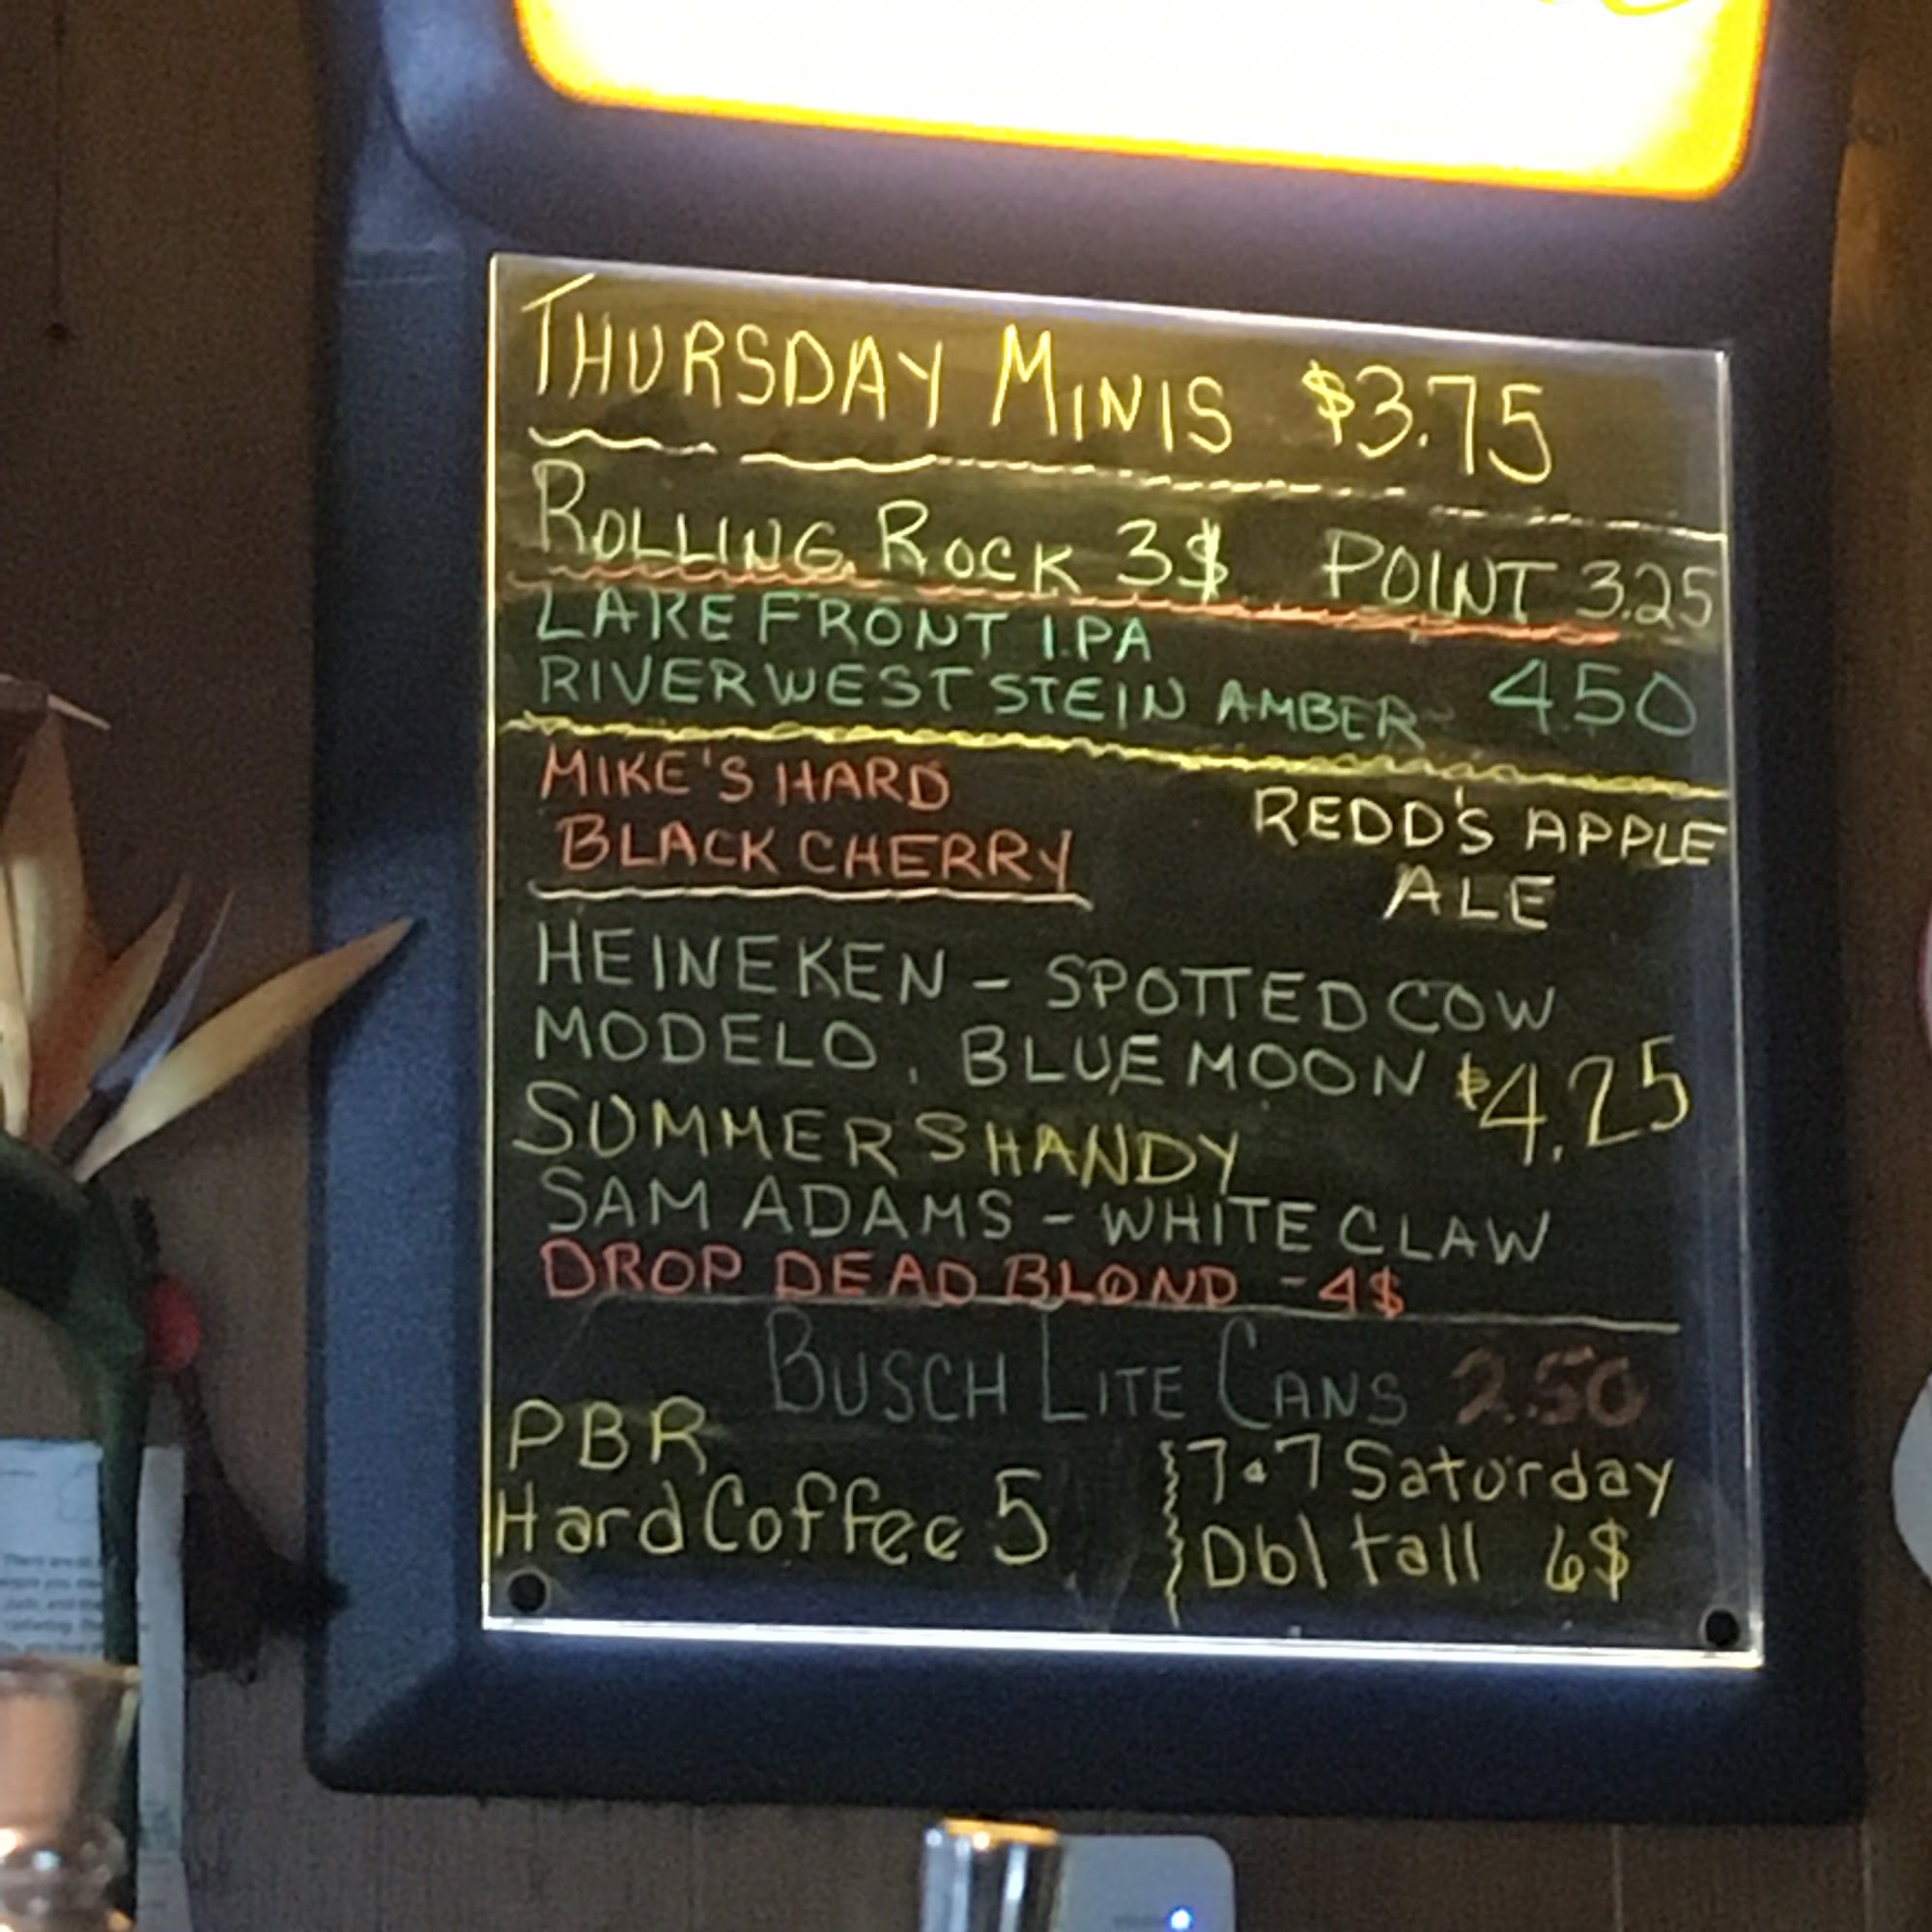 THURSDAY MINIS $3.75
ROLLING ROCK 3$ POINT 3.25
LAKEFRONT I.PA
RIVERWEST STEIN AMBER 450
MIKE'S HARD
BLACK CHERRY
REDD'S APPLE
ALE
HEINEKEN - SPOTTED COW
MODELO . BLUE MOON $4.25
SUMMER SHANDY
SAM ADAMS - WHITE CLAW
DROP DEAD BLOND - 4$
BUSCH LITE CANS 2.50
PBR
Hard Coffee 5
7-7 Saturday
Dbl tall 6$